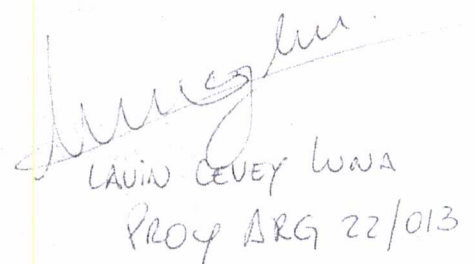 LAVIN CEVEY LUNA
PROY ARG 22/013